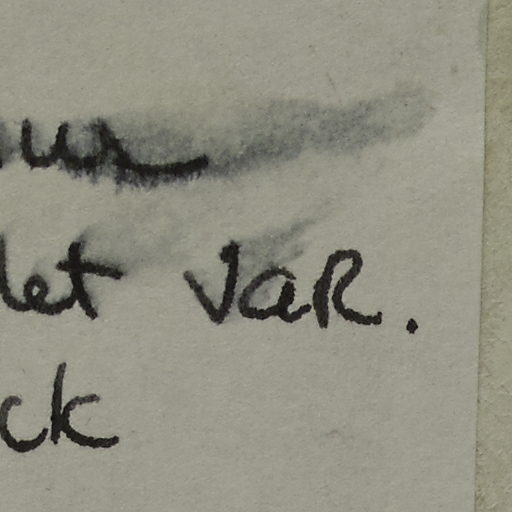 let vaR.
ck